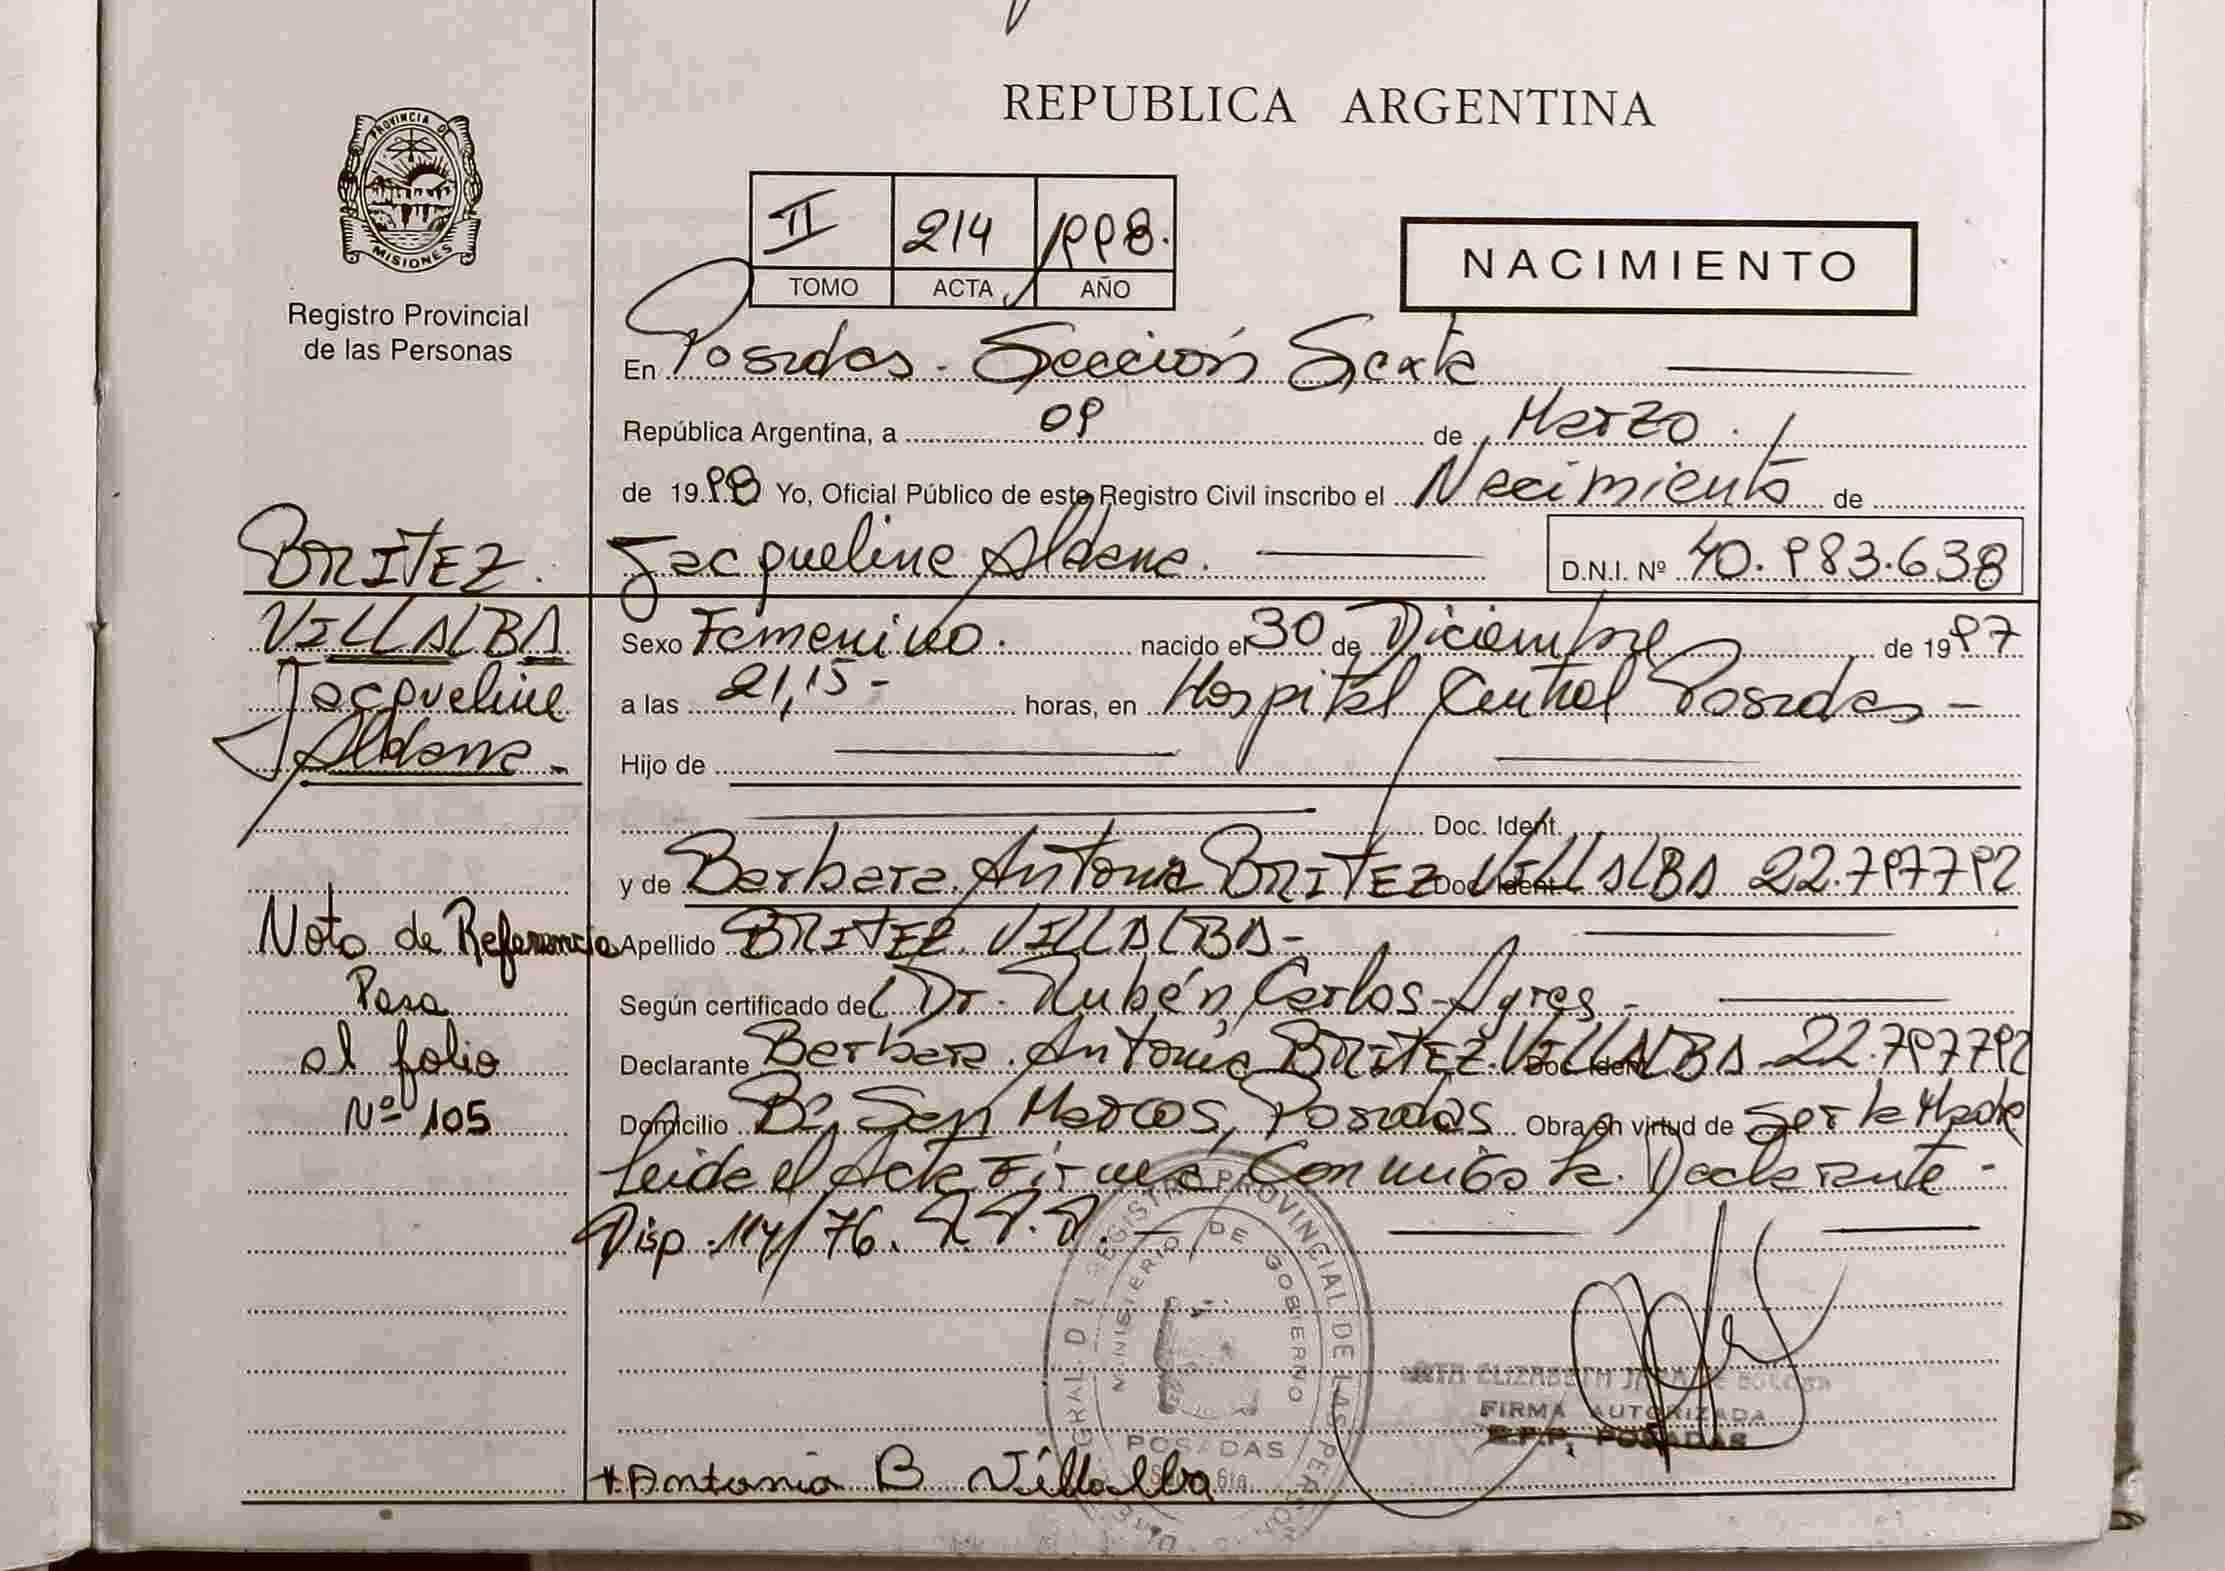 REPUBLICA ARGENTINA
PROVINCIA DE
MISIONES
Registro Provincial
de las Personas
II 214 1998.
TOMO ACTA AÑO
NACIMIENTO
En Posadas. Sección Sexta
República Argentina, a 09 de Marzo.
de 1998 Yo, Oficial Público de este Registro Civil inscribo el Nacimiento de
Jacqueline Aldana. D.N.I. Nº 40.983.638
Sexo Femenino. nacido el 30 de Diciembre de 1997
a las 21,15- horas, en Hospital Central Posadas-
Hijo de
Doc. Ident.
y de Barbara Antonia BRITEZ VILLALBA Doc. Ident. 22.797792
Apellido BRITEZ VILLALBA-
Según certificado de Dr. Rubén Carlos Ayres-
Declarante Barbara Antonia BRITEZ VILLALBA Doc. Ident. 22.797792
Domicilio Bº San Marcos, Posadas Obra en virtud de ser la Madre
Leida el Acta Firma Conmigo la Declarante-
Disp. 114/76.
BRITEZ
VILLALBA
Jacqueline
Aldana-
Nota de Referencia
Pasa
al folio
Nº 105
REGISTRO PROVINCIAL DE LAS PERSONAS
MINISTERIO DE GOBIERNO
POSADAS
6ta.
ELIZABETH
FIRMA AUTORIZADA
R.P.P. POSADAS
Antonia B Villalba